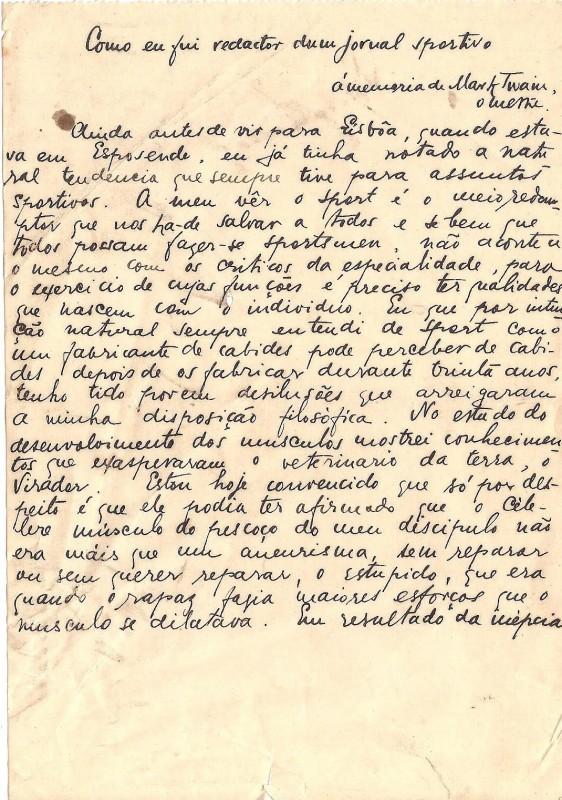 Como eu fui redactor dum jornal sportivo
á memoria de Mark Twain,
o mestre.
Ainda antes de vir para Lisbôa, quando esta-
va em Esposende, eu já tinha notado a natu
ral tendencia que sempre tive para assuntos
sportivos. A meu vêr o sport é o meio redem
ptor que nos ha-de salvar a todos e se bem que
todos possam fazer-se sportsmen, não acontece
o mesmo com os criticos da especialidade, para
o exercicio de cujas funções é preciso ter qualidades
que nascem com o individuo. Eu que por intui
ção natural sempre entendi de sport como
um fabricante de cabides pode perceber de cabi-
des depois de os fabricar durante trinta anos,
tenho tido porem desilusões que arreigaram
a minha disposição filosófica. No estudo do
desenvolvimento dos musculos mostrei conhecimen
tos que exasperaram o veterinario da terra, o
Virador. Estou hoje convencido que só por des-
peito é que ele podia ter afirmado que o céle-
bre músculo do pescoço do meu discipulo não
era mais que um aneurisma, sem reparar
ou sem querer reparar, o estupido, que era
quando o rapaz fazia maiores esforços que o
musculo se dilatava. Em resultado da inépcia